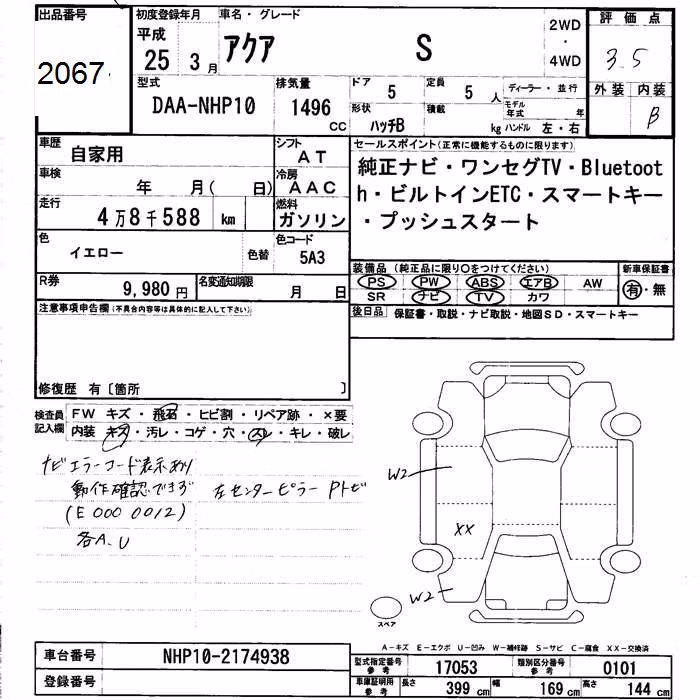 出品番号
2067
初度登録年月
平成
25 3月
車名・グレード
アクア S
2WD
・
4WD
評価点
3.5
外装 内装
B
型式
DAA-NHP10
排気量
1496
CC
ドア
5
定員
5 人
ディーラー・並行
形状
ハッチB
積載
kg
モデル年式 年
ハンドル 左・右
車歴
自家用
シフト
AT
車検
年 月( 日)
冷房
AAC
走行
4万8千588 km
燃料
ガソリン
色
イエロー
色替
色コード
5A3
R券
9,980円
名変通知期限
月 日
セールスポイント(正常に機能するものに限ります)
純正ナビ・ワンセグTV・Bluetoot
h・ビルトインETC・スマートキー
・プッシュスタート
装備品(純正品に限り○をつけてください)
PS PW ABS エアB AW
SR ナビ TV カワ
新車保証書
有・無
後日品
保証書・取説・ナビ取説・地図SD・スマートキー
注意事項申告欄(不具合内容等は具体的に記入して下さい)
修復歴 有〔箇所 〕
検査員
記入欄
FW キズ・飛石・ヒビ割・リペア跡・×要
内装 キズ・汚レ・コゲ・穴・スレ・キレ・破レ
ナビエラーコード表示あり
動作確認できず 左センターピラーPトビ
(E000 0012)
各A.U
W2
XX
W2
スペア
A-キズ E-エクボ U-凹み W-補修跡 S-サビ C-腐食 XX-交換済
車台番号
NHP10-2174938
登録番号
型式指定番号
参考
17053
類別区分番号
参考
0101
車庫証明用
参考
長さ
399 cm
幅
169 cm
高さ
144 cm